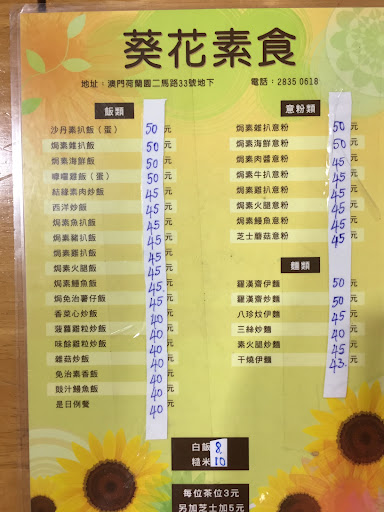 葵花素食
地址：澳門荷蘭園二馬路33號地下 電話：2835 0618
飯類
沙丹素扒飯（蛋） 50元
焗素雜扒飯 50元
焗素海鮮飯 50元
雞飯（蛋） 50元
素肉炒飯 45元
西洋炒飯 45元
焗素魚扒飯 45元
焗素豬扒飯 45元
焗素雞扒飯 45元
焗素火腿飯 45元
焗素鰻魚飯 45元
焗免治薯仔飯 45元
香菜心炒飯 40元
菠蘿雞粒炒飯 40元
味餘雞粒炒飯 40元
雜菇炒飯 40元
免治素香飯 40元
豉汁鰻魚飯 40元
是日例餐 40元
意粉類
焗素雜扒意粉 50元
焗素海鮮意粉 50元
焗素肉醬意粉 45元
焗素牛扒意粉 45元
焗素雞扒意粉 45元
焗素火腿意粉 45元
焗素鰻魚意粉 45元
芝士蘑菇意粉 45元
麵類
羅漢齋伊麵 50元
羅漢齋炒麵 50元
八珍炆伊麵 45元
三絲炒麵 40元
素火腿炒麵 45元
干燒伊麵 43元
白飯 8元
糙米 10元
每位茶位3元
另加芝士加5元